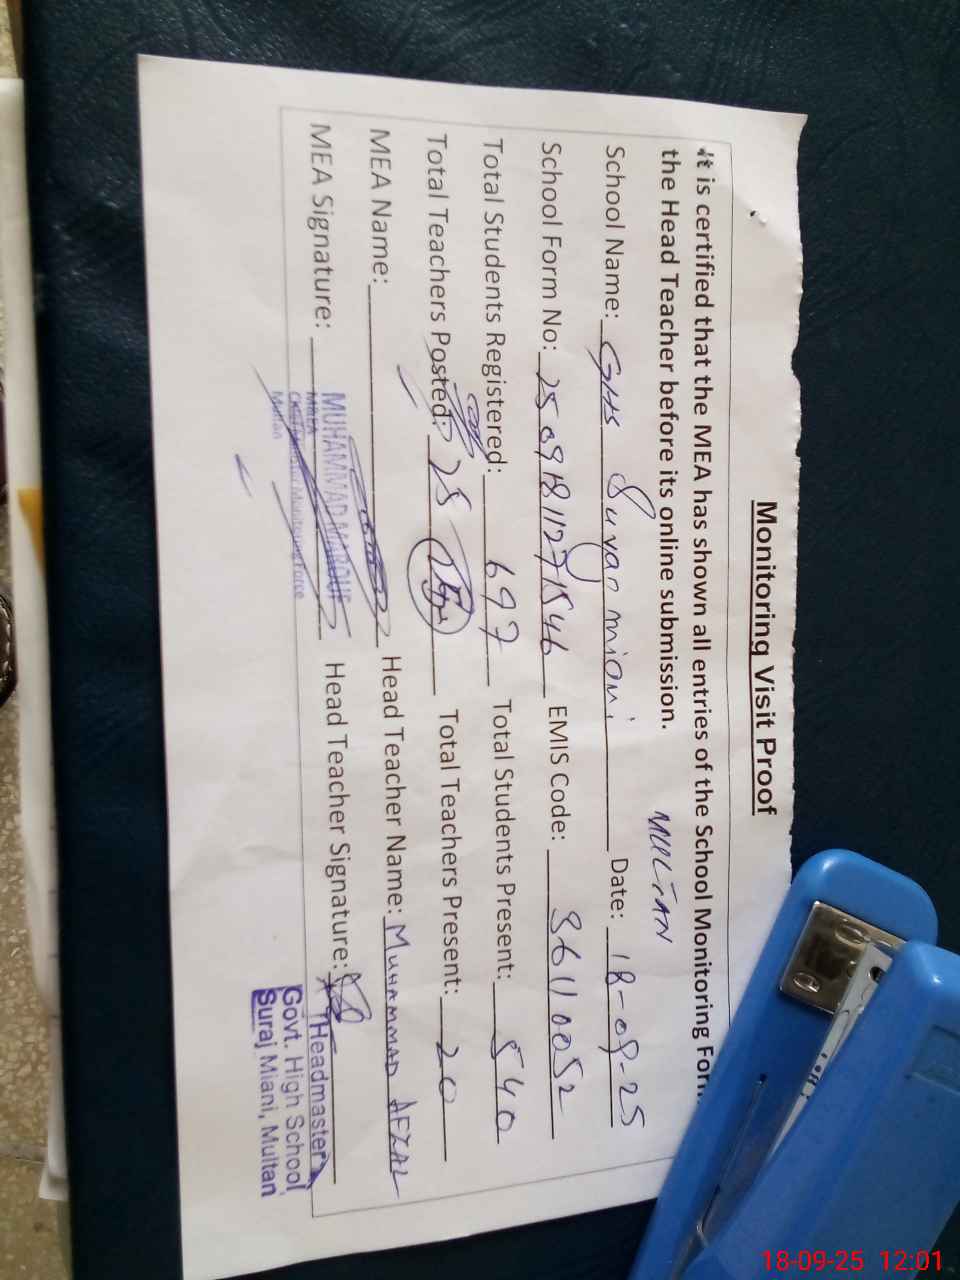 Monitoring Visit Proof
It is certified that the MEA has shown all entries of the School Monitoring Form
the Head Teacher before its online submission.
MULTAN
School Name: GHS Surajmiani Date: 18-09-25
School Form No: 25091811271546 EMIS Code: 36110052
Total Students Registered: 697 Total Students Present: 540
Total Teachers Posted: 25 Total Teachers Present: 20
MEA Name: Head Teacher Name: MUHAMMAD AFZAL
MEA Signature: Head Teacher Signature:
MUHAMMAD MAROUF
M&EA
Chief Minister Monitoring Force
Multan
Headmaster
Govt. High School
Suraj Miani, Multan
18-09-25 12:01